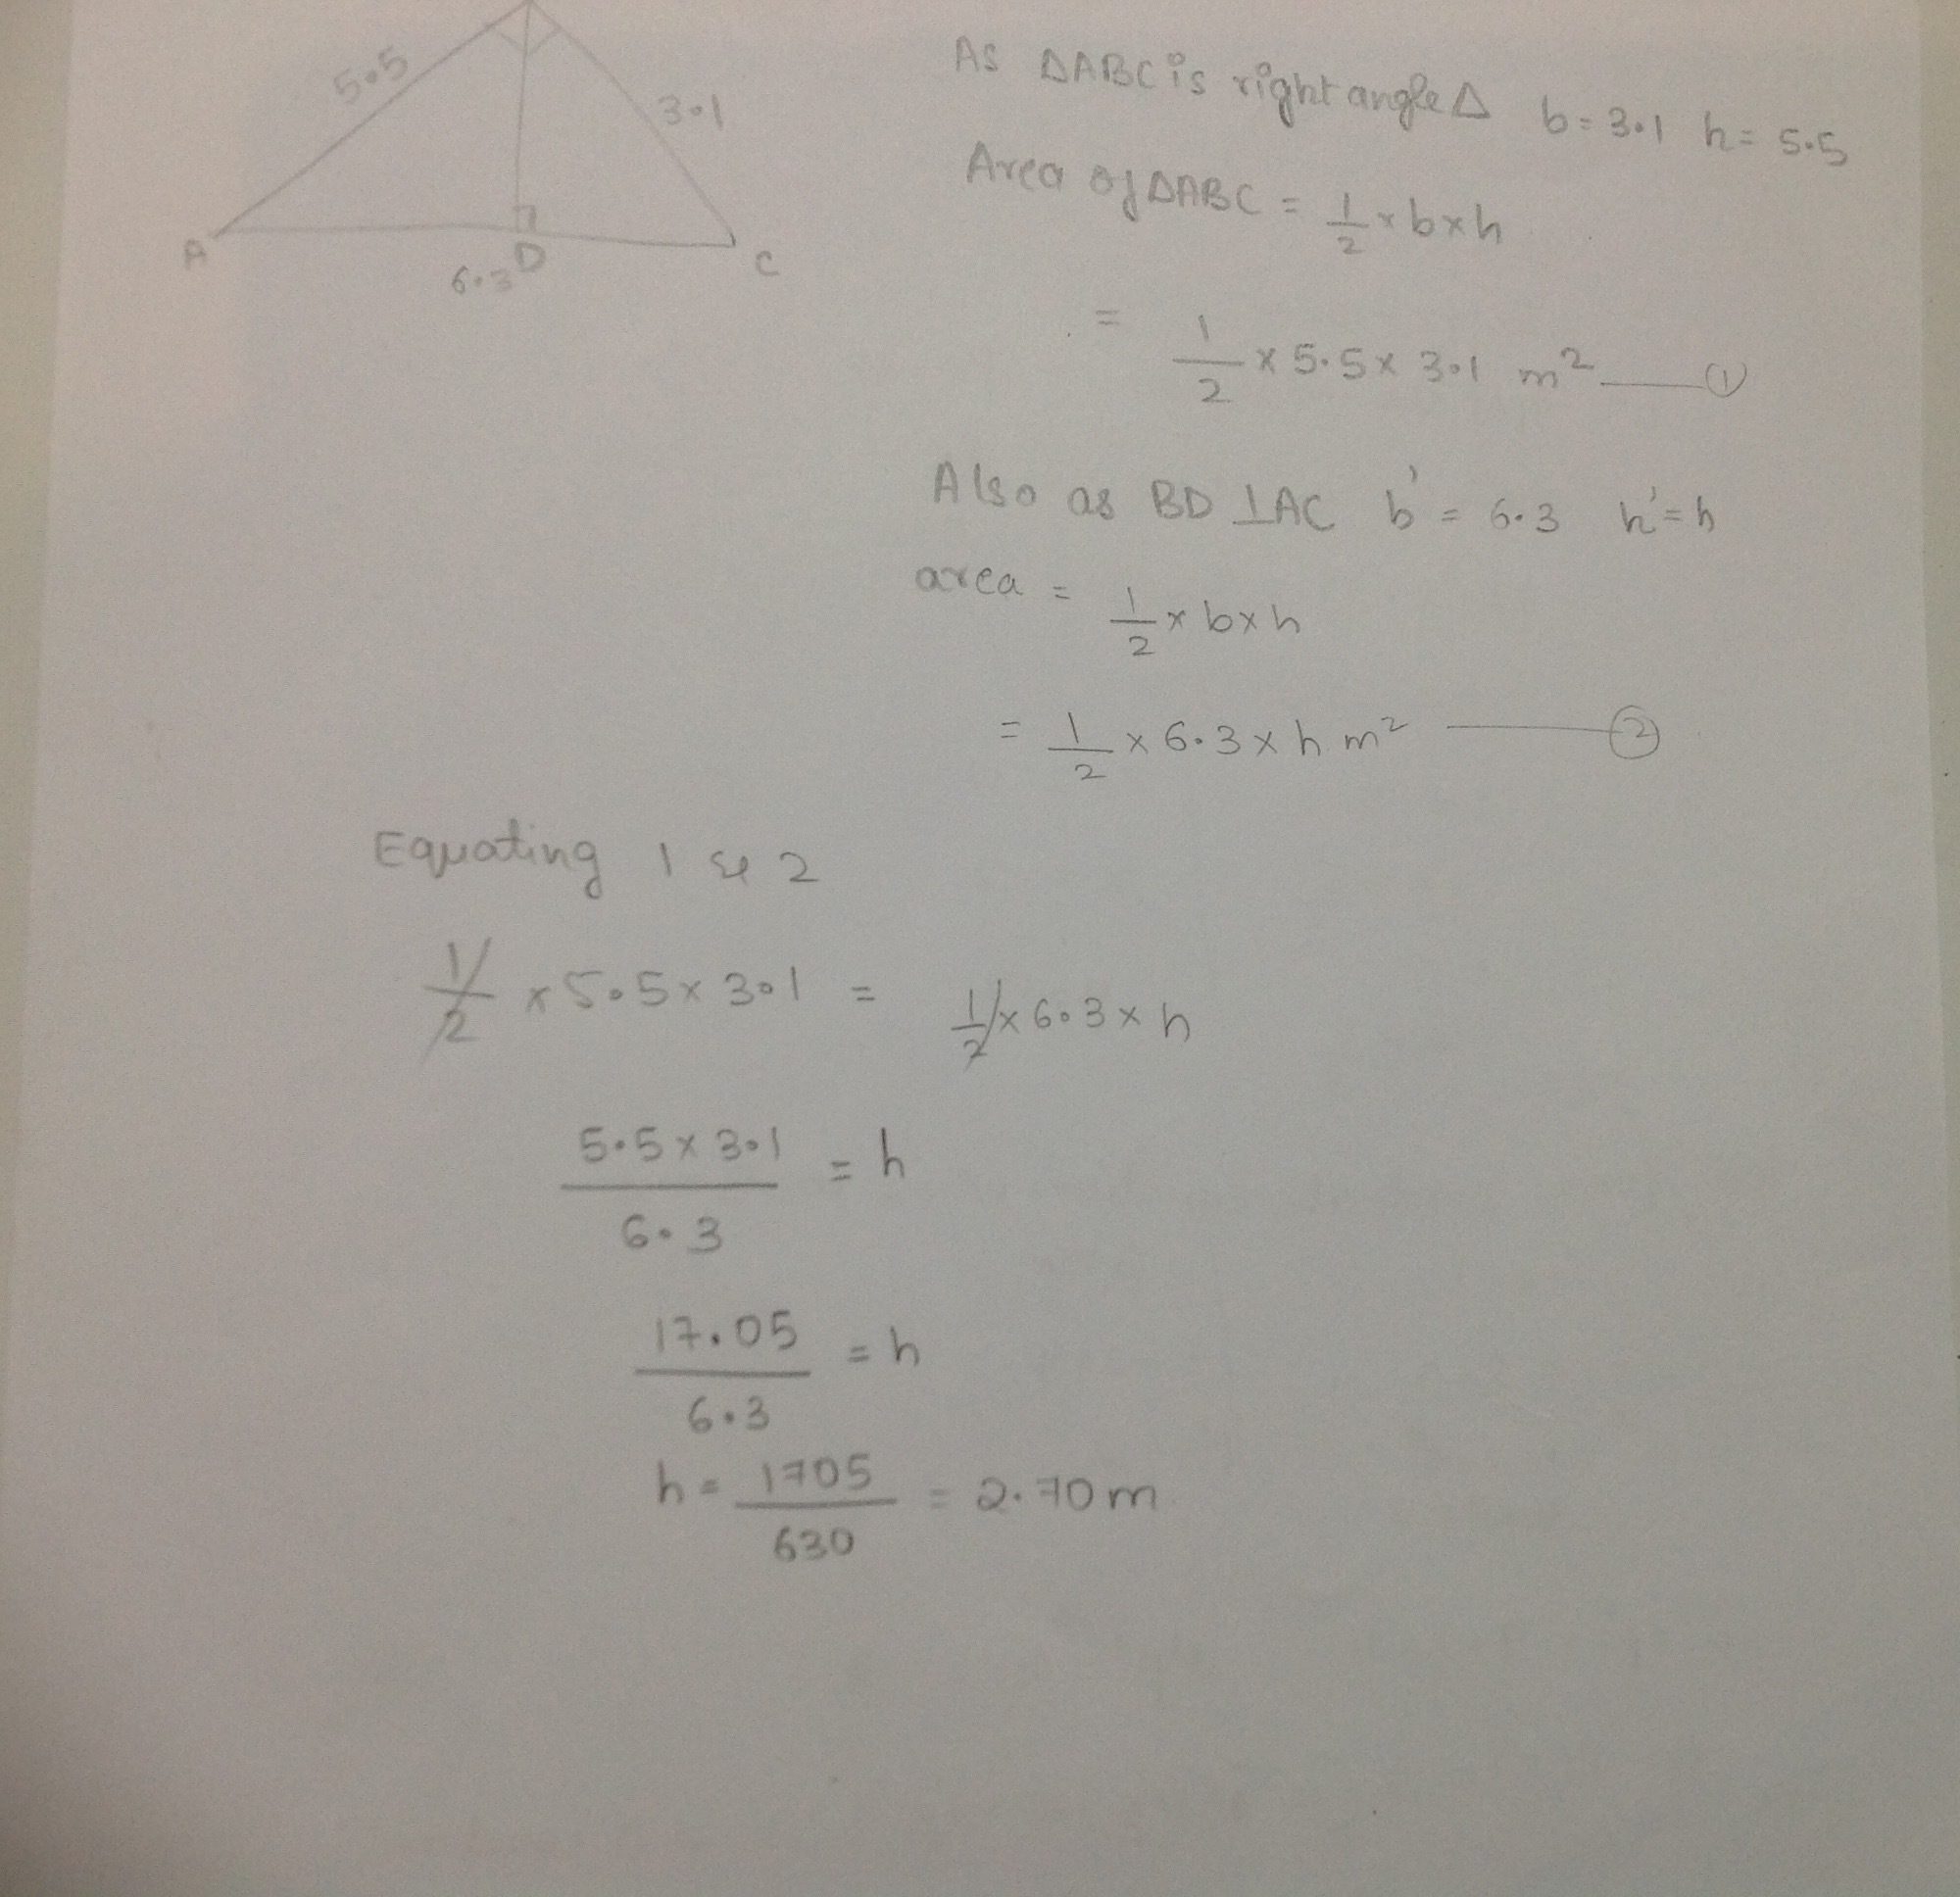 5.5
3.1
A
D
C
6.3
As ΔABC is right angle Δ b = 3.1 h = 5.5
Area of ΔABC = 1/2 × b × h
= 1/2 × 5.5 × 3.1 m² — ①
Also as BD ⊥ AC b' = 6.3 h' = h
area = 1/2 × b × h
= 1/2 × 6.3 × h m² — ②
Equating 1 & 2
1/2 × 5.5 × 3.1 = 1/2 × 6.3 × h
5.5 × 3.1 / 6.3 = h
17.05 / 6.3 = h
h = 1705 / 630 = 2.70 m